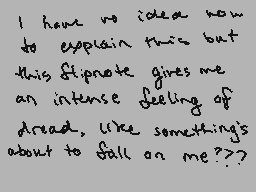 I have no idea how
to explain this but
this flipnote gives me
an intense feeling of
dread, like something's
about to fall on me???